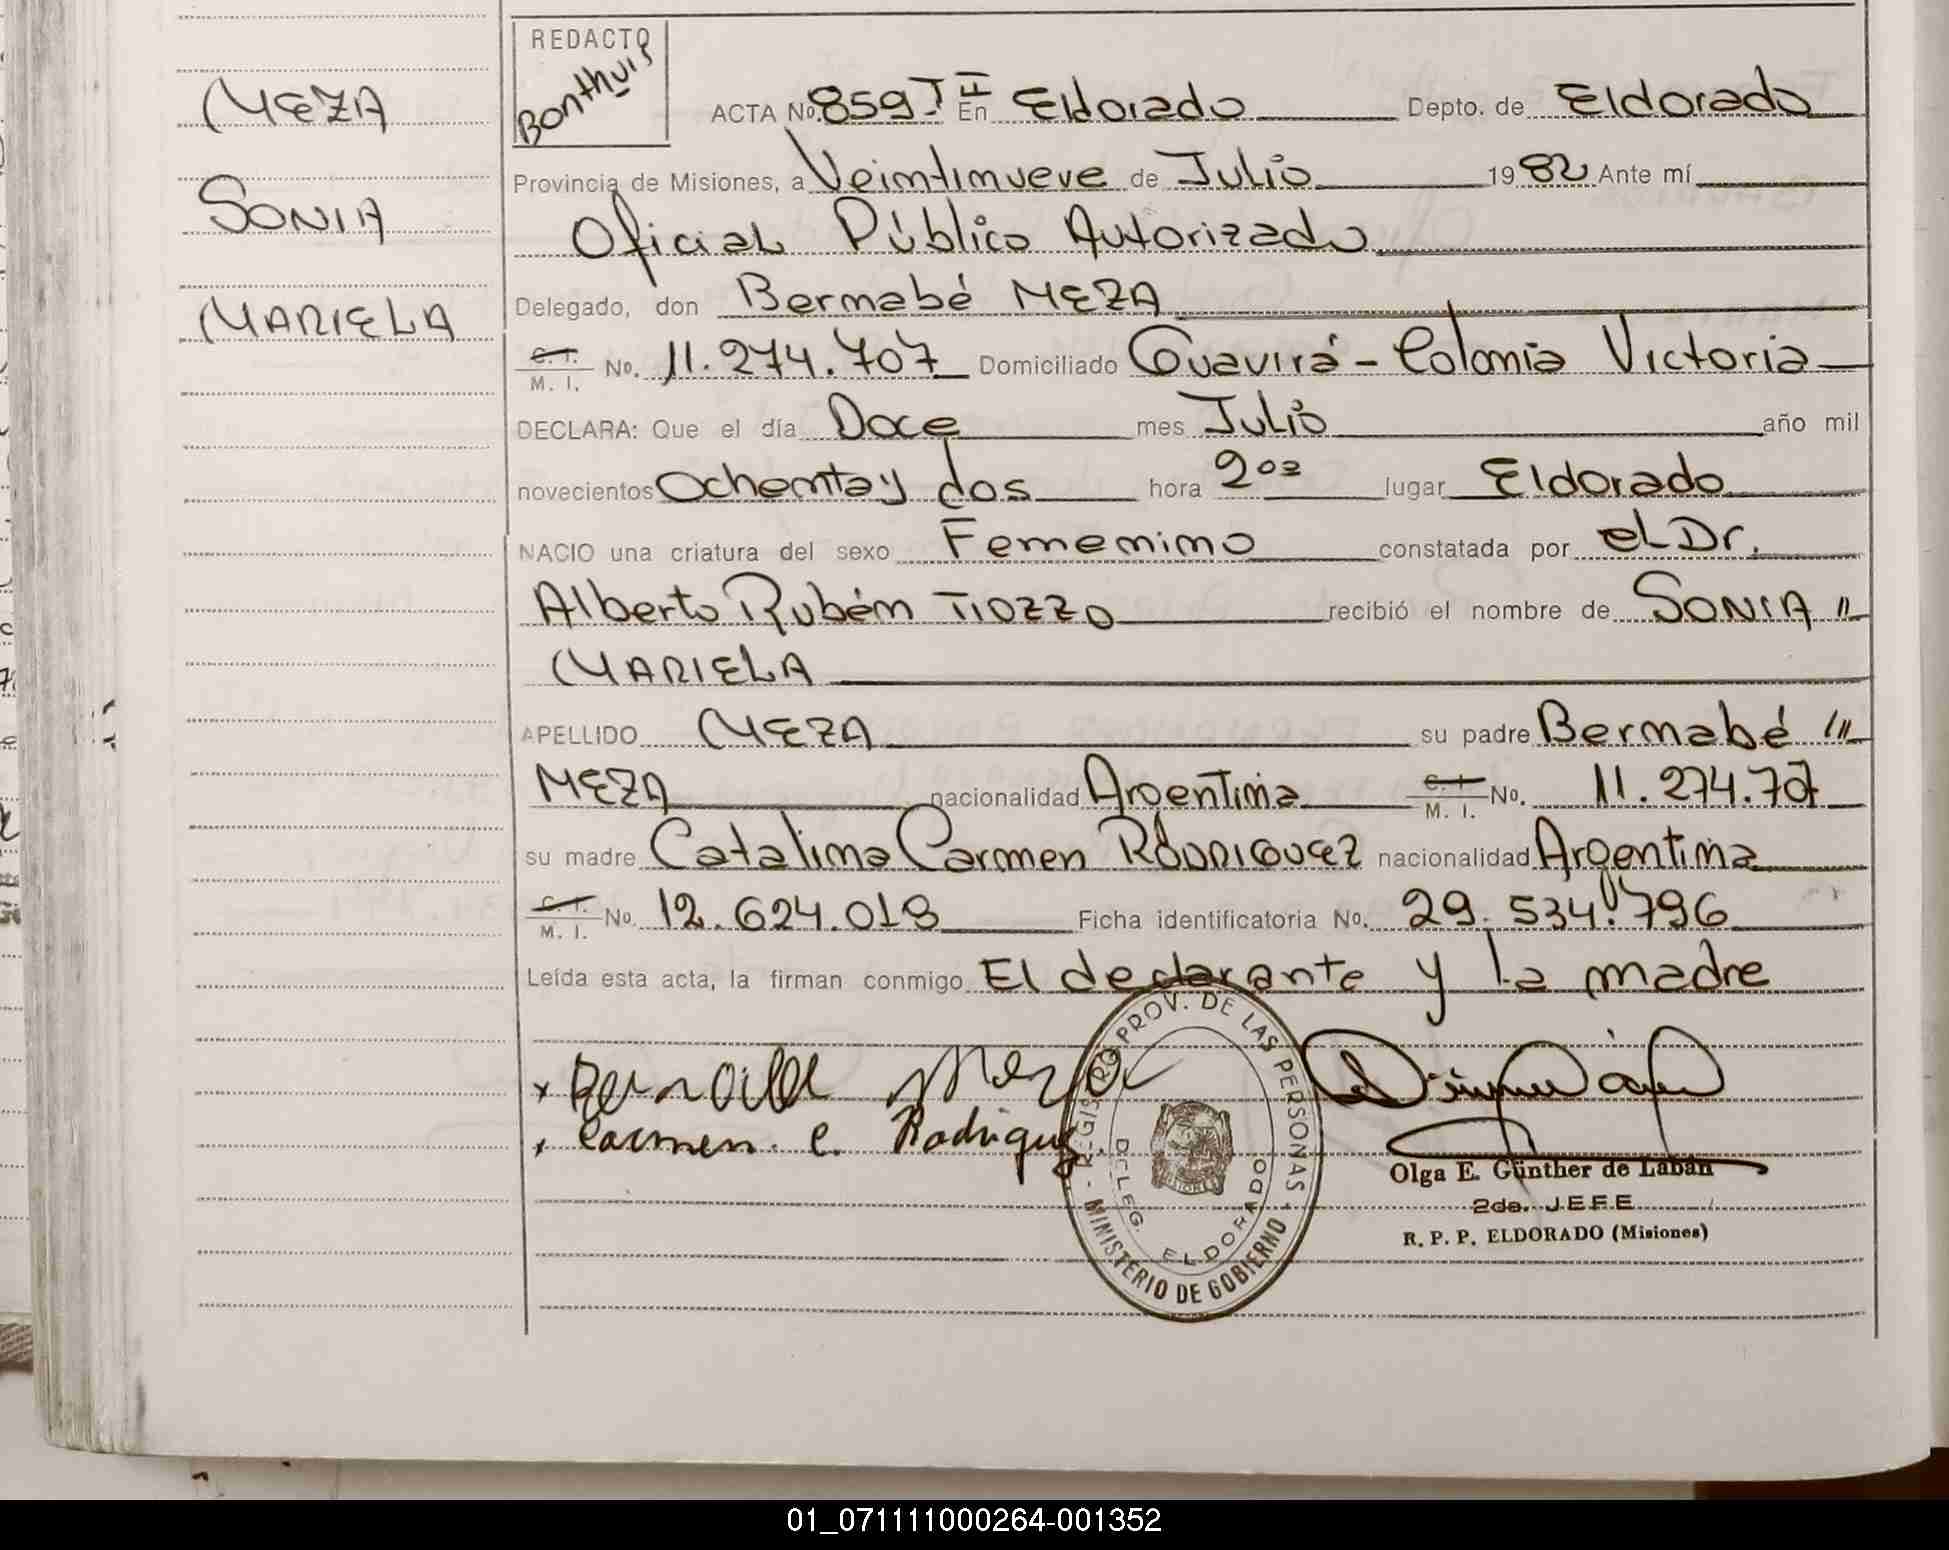 MEZA
SONIA
MARIELA
REDACTO
Bonthuis
ACTA No. 859 T II En Eldorado Depto. de Eldorado
Provincia de Misiones, a Veintinueve de Julio 1982 Ante mí
Oficial Público Autorizado
Delegado, don Bernabé MEZA
C. I. / M. I. No. 11.274.707 Domiciliado Guavirá - Colonia Victoria
DECLARA: Que el día Doce mes Julio año mil
novecientos Ochenta y dos hora 2⁰² lugar Eldorado
NACIO una criatura del sexo Femenino constatada por el Dr.
Alberto Rubén TIOZZO recibió el nombre de SONIA //
MARIELA
APELLIDO MEZA su padre Bernabé ///
MEZA nacionalidad Argentina C. I. / M. I. No. 11.274.707
su madre Catalina Carmen RODRIGUEZ nacionalidad Argentina
C. I. / M. I. No. 12.624.018 Ficha identificatoria No. 29.534.796
Leída esta acta, la firman conmigo El declarante y la madre
x Bernabe Meza
x Carmen C. Rodriguez
REGISTRO PROV. DE LAS PERSONAS
DELEG. ELDORADO
MINISTERIO DE GOBIERNO
Olga E. Günther de Labán
2da. JEFE
R. P. P. ELDORADO (Misiones)
01_071111000264-001352